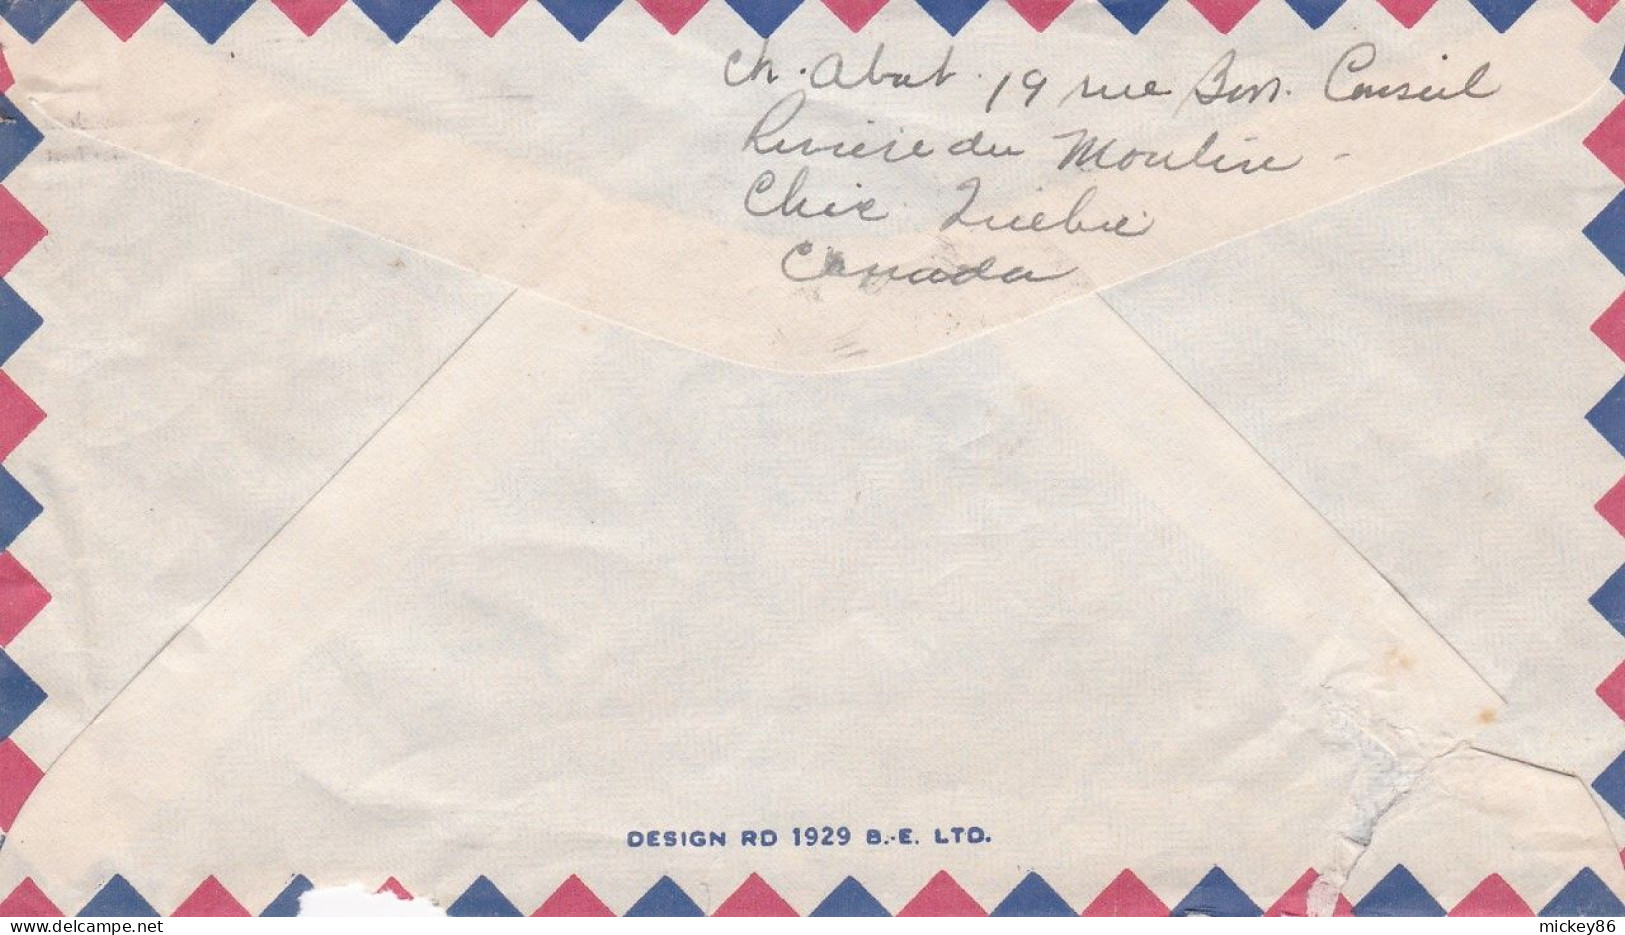 Ch. Abat. 19 rue Bon. Conseil
Rivière du Moulin -
Chic. Québec
Canada
DESIGN RD 1929 B.-E. LTD.
delcampe.net
mickey86